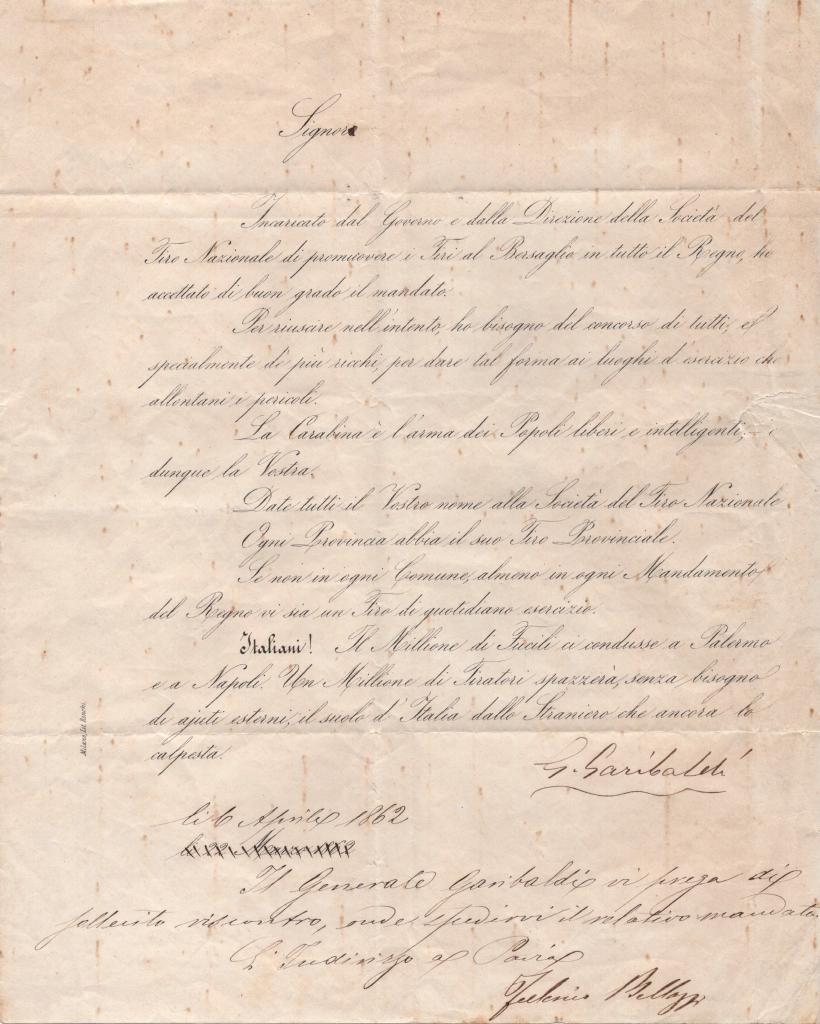 Signore
Incaricato dal Governo e dalla Direzione della Società del
Tiro Nazionale di promuovere i Tiri al Bersaglio in tutto il Regno, ho
accettato di buon grado il mandato.
Per riuscire nell'intento, ho bisogno del concorso di tutti, e
specialmente de' più ricchi, per dare tal forma ai luoghi d'esercizio che
allontani i pericoli.
La Carabina è l'arma dei Popoli liberi e intelligenti, è
dunque la Vostra.
Date tutti il Vostro nome alla Società del Tiro Nazionale
Ogni Provincia abbia il suo Tiro Provinciale.
Se non in ogni Comune, almeno in ogni Mandamento
del Regno vi sia un Tiro di quotidiano esercizio.
Italiani! Il Millione di Fucili ci condusse a Palermo
e a Napoli. Un Millione di Tiratori spazzerà, senza bisogno
di ajuti esterni, il suolo d'Italia dallo Straniero che ancora lo
calpesta.
G. Garibaldi
Milano, Lit. Ronchi
li 6 Aprile 1862
Il Generale Garibaldi vi prega di
sollecito riscontro, onde spedirvi il relativo mandato.
L'Indirizzo a Pavia
Federico Bellazzi